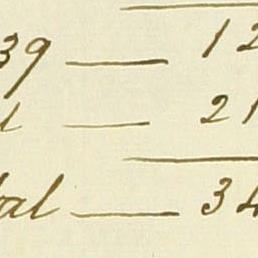 39 — 12
— 21
tal — 34